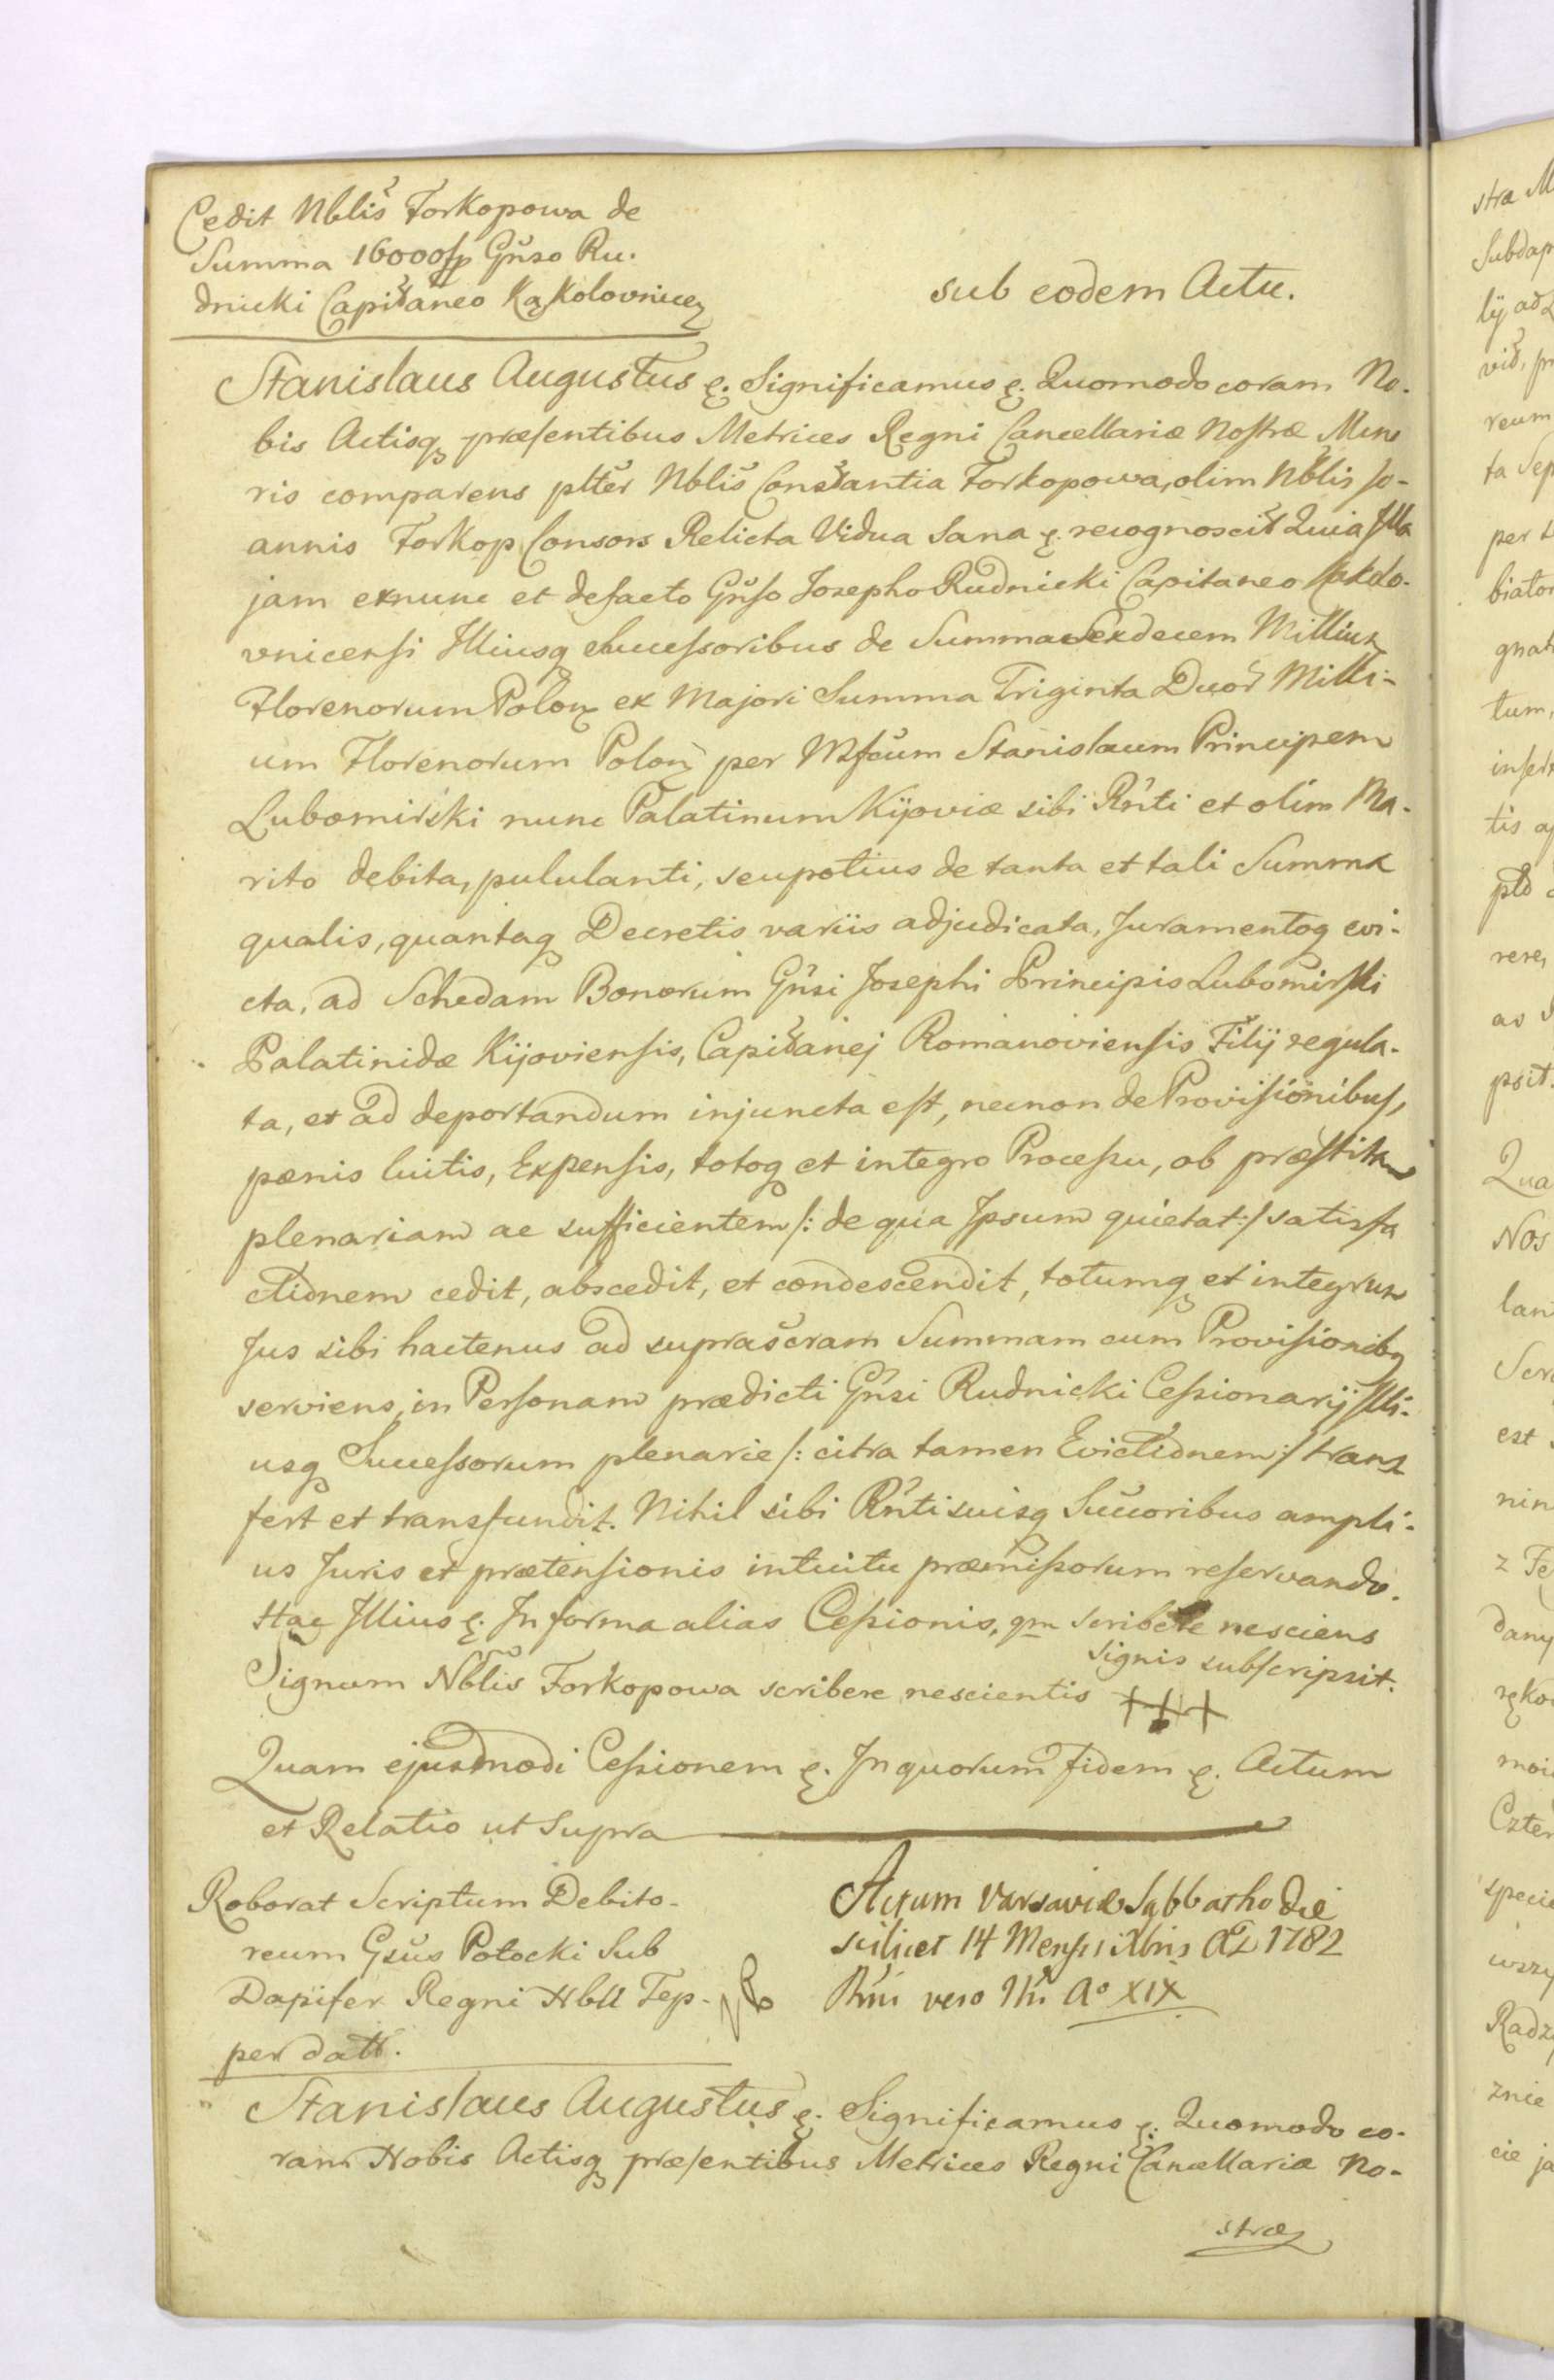 Cedit Nblis Forkopowa de
Summa 16000fp Gñso Ru.
dnicki Capitaneo Kąkolovnicen
sub eodem Actu.
Stanislaus Augustus &. Significamus &. Quomodo coram No.
bis Actisq præsentibus Metrices Regni Cancellariæ Nostræ Mino
ris comparens plter Nblis Constantia Forkopowa, olim Nblis Jo-
annis Forkop Consors Relicta Vidua Sana &. recognoscit Quia Illa
jam exnunc et defacto Gñso Josepho Rudnicki Capitaneo Kąkolo-
vnicensi Illiusq Successoribus de Summa Sexdecem Millium
Florenorum Polon ex Majori Summa Triginta Duor Milli-
um Florenorum Polon per Mfcum Stanislaum Principem
Lubomirski nunc Palatinum Kijoviæ sibi Rnti et olim Ma-
rito debita, pululanti, seupotius de tanta et tali Summa
qualis, quantaq Decretis variis adjudicata, Juramentoq evi-
cta, ad Schedam Bonorum Gñsi Josephi Principis Lubomirski
Palatinidæ Kijoviensis, Capitanej Romanoviensis Filij regula-
ta, et ad deportandum injuncta est, necnon de Provisionibus,
pænis luitis, Expensis, totoq et integro Processu, ob præstitam
plenariam ac sufficientem /: de qua Ipsum quietat :/ satisfa
ctionem cedit, abscedit, et condescendit, totumq et integrum
Jus sibi hactenus ad suprascram Summam cum Provisionibq
serviens, in Personam prædicti Gñsi Rudnicki Cessionarij Illi-
usq Successorum plenarie /: citra tamen Evictionem :/ trans
fert et transfundit. Nihil sibi Rnti suisq Succoribus ampli-
us Juris et prætensionis intuitu præmissorum reservando.
Hac Illius &. In forma alias Cessionis, qm scribere nesciens
signis subscripsit.
Signum Nblis Forkopowa scribere nescientis +++
Quam ejusmodi Cessionem &. In quorum fidem &. Actum
et Relatio ut Supra
Roborat Scriptum Debito-
reum Gsus Potocki Sub
Dapifer Regni Nbli Tep-
per datt.
Actum Varsaviæ Sabbatho die
scilicet 14 Mensis Xbris A 1782
Rni vero Nri Aº XIX
Stanislaus Augustus &. Significamus &. Quomodo co-
ram Nobis Actisq præsentibus Metrices Regni Cancellariæ No-
stræ